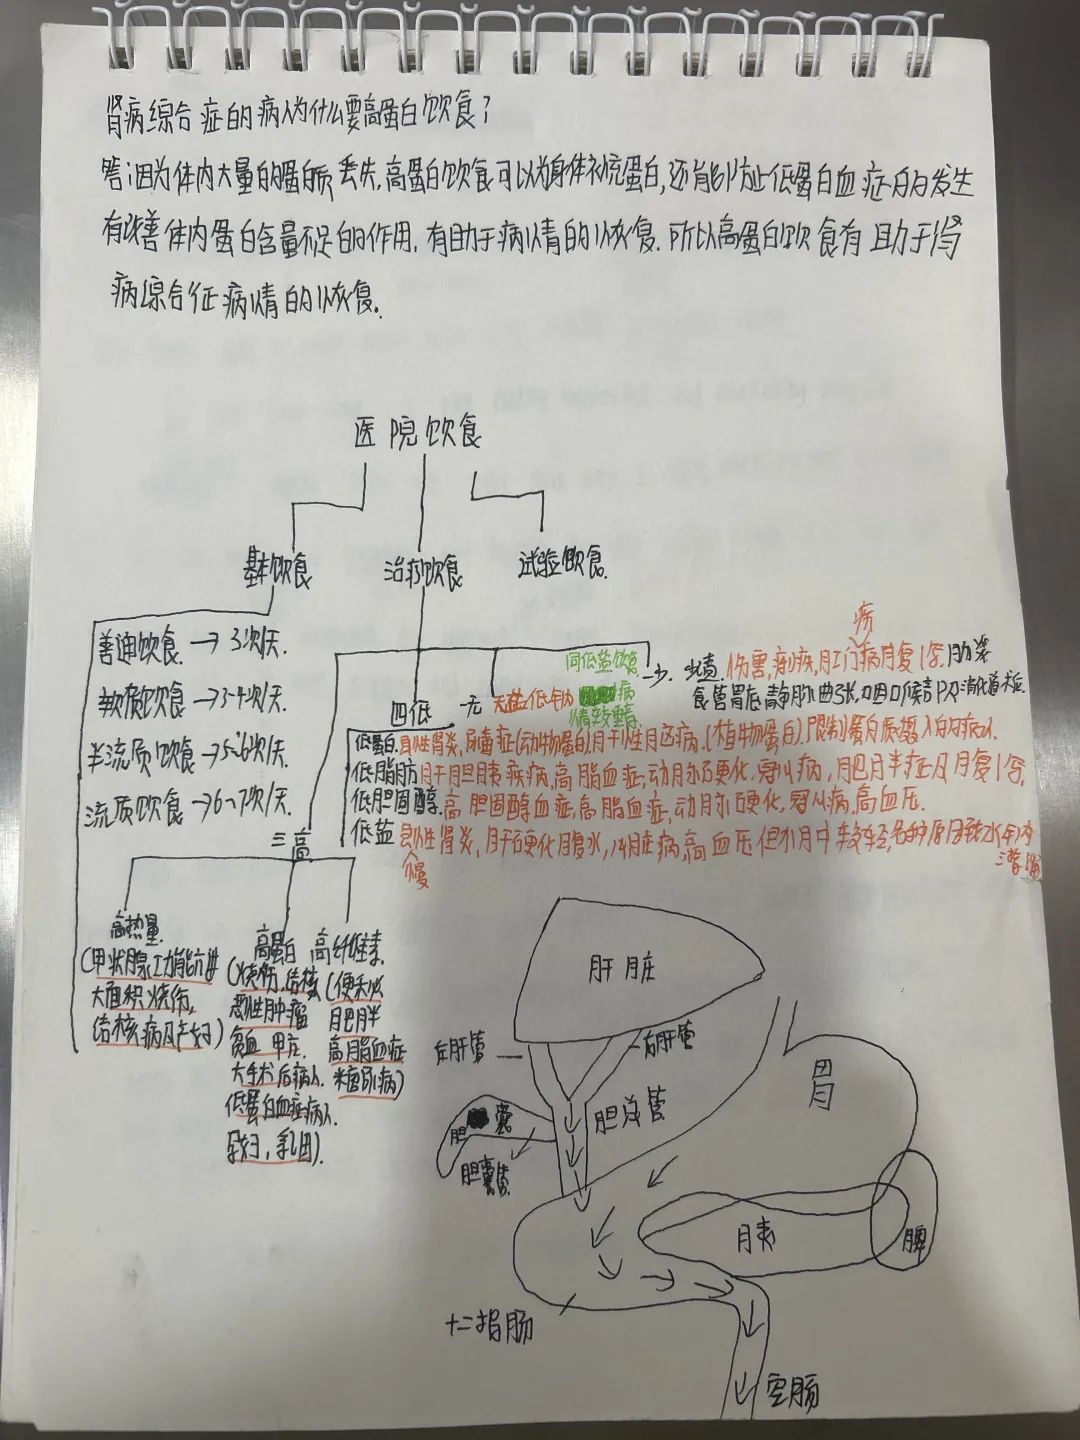 肾病综合症的病人为什么要高蛋白饮食？
答：因为体内大量的蛋白质丢失，高蛋白饮食可以为身体补充蛋白，还能防止低蛋白血症的发生
有改善体内蛋白含量不足的作用，有助于病情的恢复．所以高蛋白饮食有助于肾
病综合征病情的恢复．
医院饮食
基本饮食
治疗饮食
试验饮食
普通饮食 → 3次/天．
软质饮食 → 3-4次/天
半流质饮食 → 5~6次/天
流质饮食 → 6~7次/天
四低
一无
无盐低钠
同低盐饮食
病
情较重者
一少
少渣．伤寒，痢疾，肛门病，腹泻，
疡
食管胃底静脉曲张，咽喉部及消化道术后
低蛋白．急性肾炎，尿毒症(动物蛋白)肝性
低脂肪 肝胆胰疾病，高脂血症，动脉硬化，冠心病，肥胖症及腹泻．
低胆固醇．高胆固醇血症，高脂血症，动脉硬化，冠心病，高血压．
低盐 急性肾炎，肝硬化腹水，心脏病，高血压但水肿较轻者
慢
三高
高热量
(甲状腺功能亢进
大面积烧伤，
结核病及产妇)
高蛋白
(烧伤．结核
恶性肿瘤
贫血 甲亢．
大手术后病人．
低蛋白血症病人．
孕妇，乳母)．
高纤维素．
(便秘
肥胖
高脂血症
糖尿病)
肝脏
左肝管
右肝管
胆总管
胆囊
胆囊管
胃
胰
脾
十二指肠
空肠